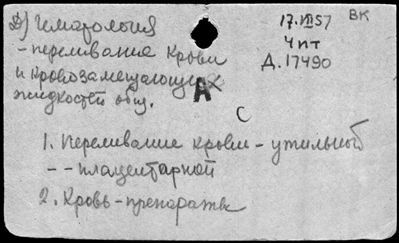 д) Гематология
- переливание крови
и кровозамещающих
жидкостей общ.
17.VII 57
ВК
4 пт
Д.17490
А
С
1. Переливание крови - утильной
- - плацентарной
2. Кровь - препараты